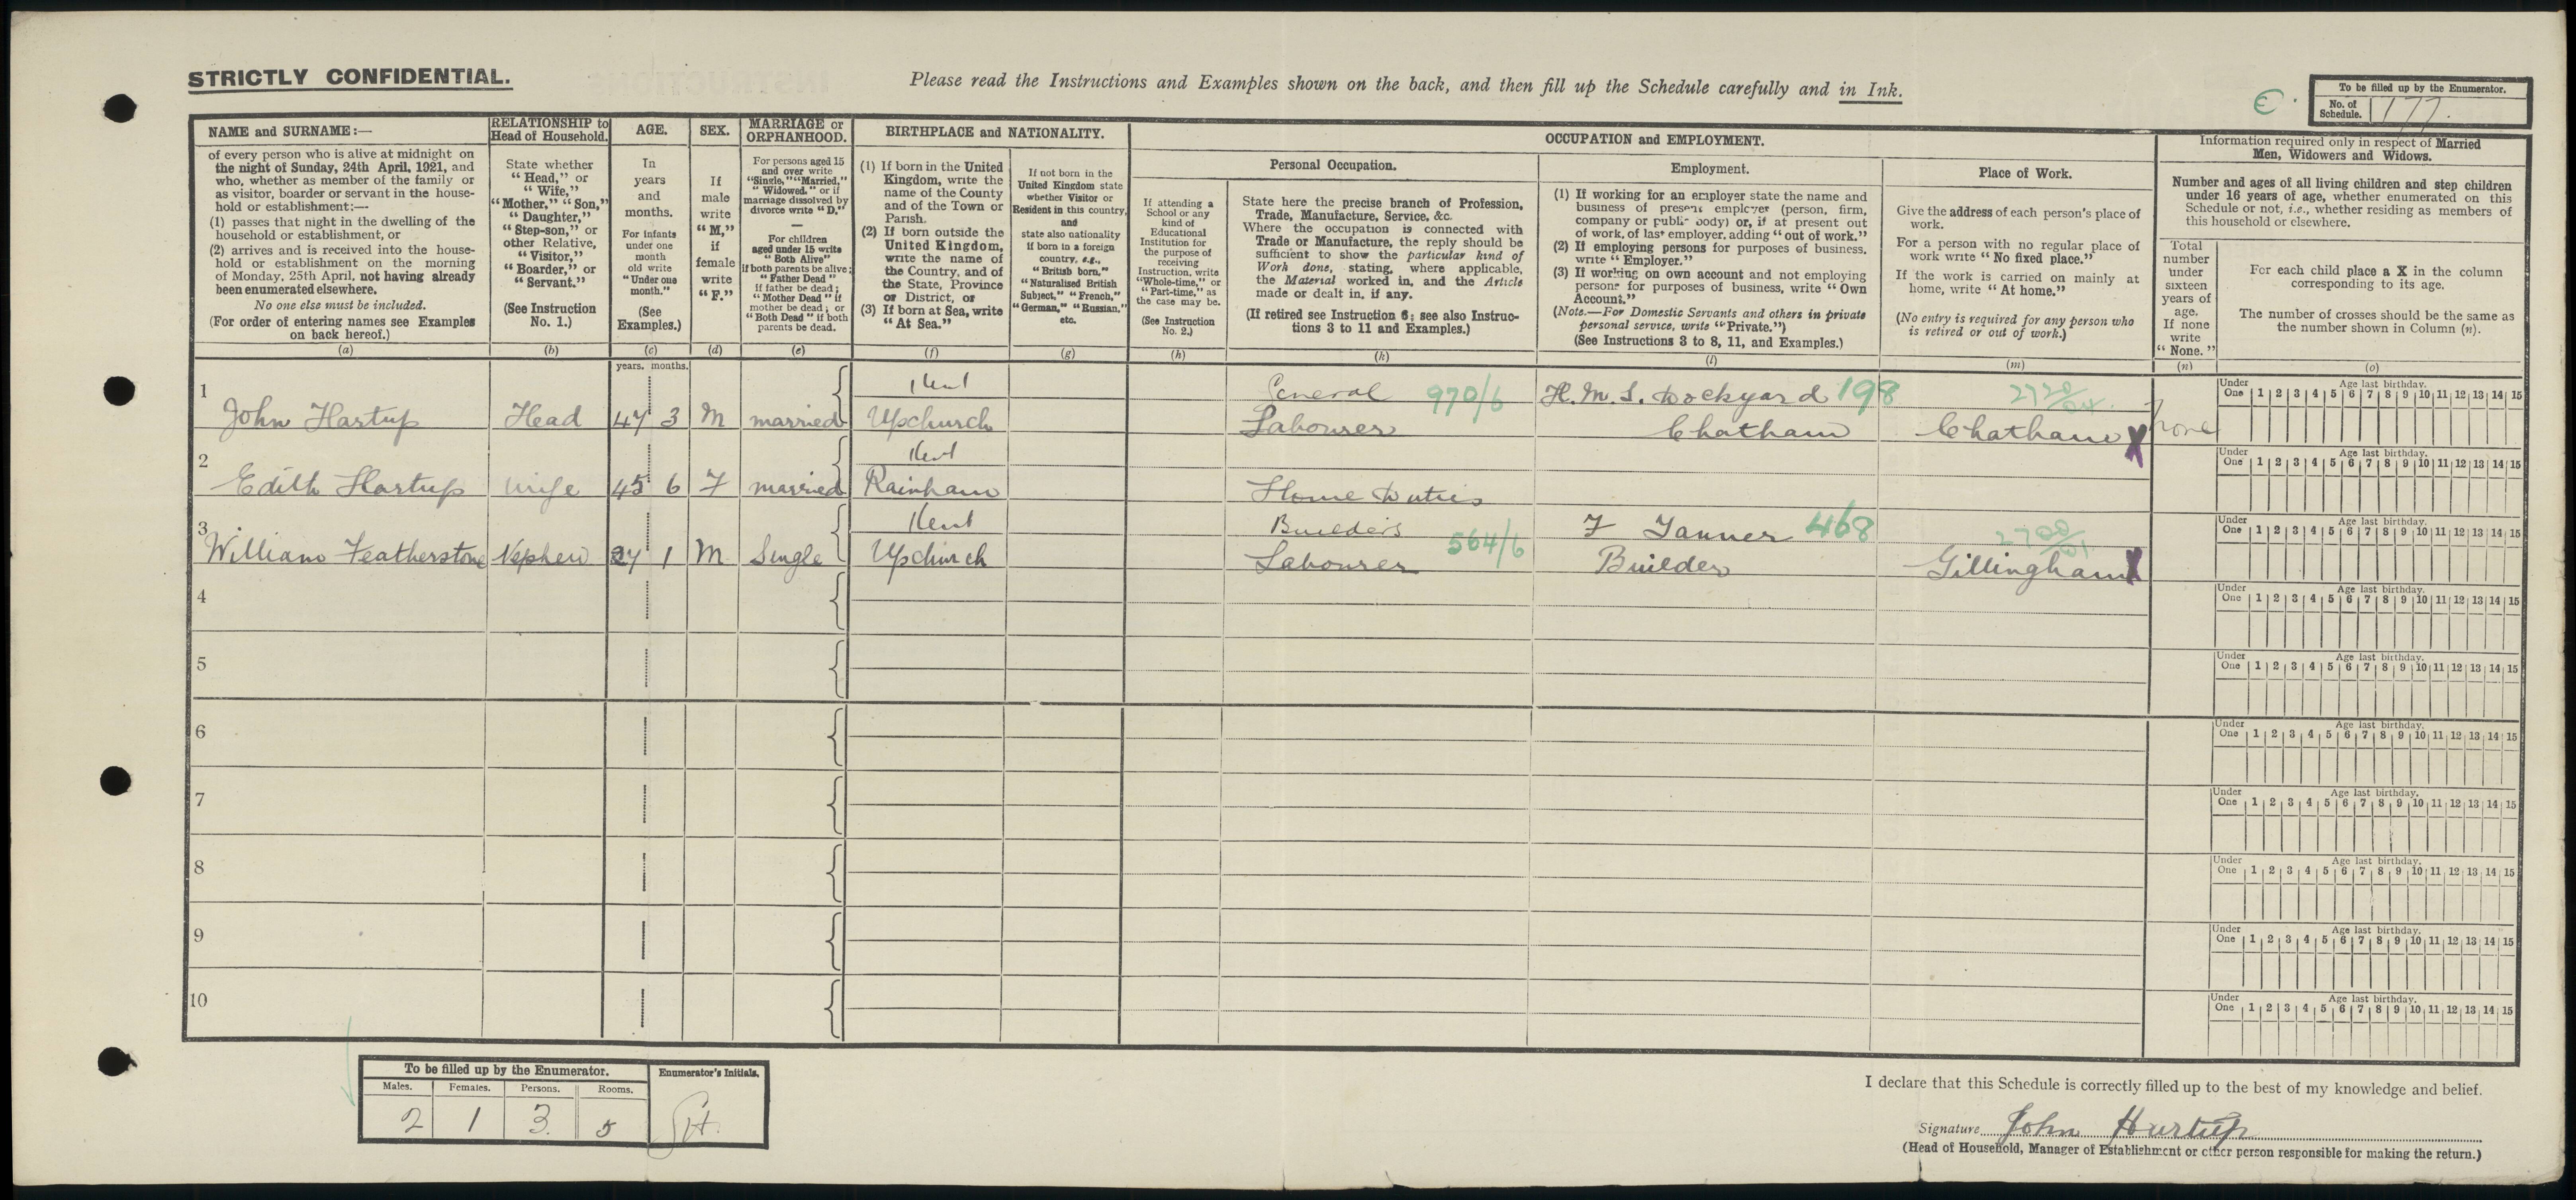 STRICTLY CONFIDENTIAL.
Please read the Instructions and Examples shown on the back, and then fill up the Schedule carefully and in Ink.
To be filled up by the Enumerator.
No. of Schedule. 177.
NAME and SURNAME:—
of every person who is alive at midnight on
the night of Sunday, 24th April, 1921, and
who, whether as member of the family or
as visitor, boarder or servant in the house-
hold or establishment:—
(1) passes that night in the dwelling of the
household or establishment, or
(2) arrives and is received into the house-
hold or establishment on the morning
of Monday, 25th April, not having already
been enumerated elsewhere.
No one else must be included.
(For order of entering names see Examples
on back hereof.)
(a)
RELATIONSHIP to
Head of Household.
State whether
"Head," or
"Wife,"
"Mother," "Son,"
"Daughter,"
"Step-son," or
other Relative,
"Visitor,"
"Boarder," or
"Servant."
(See Instruction
No. 1.)
(b)
AGE.
In
years
and
months.
For infants
under one
month
old write
"Under one
month."
(See
Examples.)
(c)
years. months.
SEX.
If
male
write
"M,"
if
female
write
"F."
(d)
MARRIAGE or
ORPHANHOOD.
For persons aged 15
and over write
"Single," "Married,"
"Widowed," or if
marriage dissolved by
divorce write "D."
—
For children
aged under 15 write
"Both Alive"
if both parents be alive;
"Father Dead"
if father be dead;
"Mother Dead" if
mother be dead; or
"Both Dead" if both
parents be dead.
(e)
BIRTHPLACE and NATIONALITY.
(1) If born in the United
Kingdom, write the
name of the County
and of the Town or
Parish.
(2) If born outside the
United Kingdom,
write the name of
the Country, and of
the State, Province
or District, or
(3) If born at Sea, write
"At Sea."
(f)
If not born in the
United Kingdom state
whether Visitor or
Resident in this country,
and
state also nationality
if born in a foreign
country, e.g.,
"British born,"
"Naturalised British
Subject," "French,"
"German," "Russian,"
etc.
(g)
OCCUPATION and EMPLOYMENT.
If attending a
School or any
kind of
Educational
Institution for
the purpose of
receiving
Instruction, write
"Whole-time," or
"Part-time," as
the case may be.
(See Instruction
No. 2.)
(h)
Personal Occupation.
State here the precise branch of Profession,
Trade, Manufacture, Service, &c.
Where the occupation is connected with
Trade or Manufacture, the reply should be
sufficient to show the particular kind of
Work done, stating, where applicable,
the Material worked in, and the Article
made or dealt in, if any.
(If retired see Instruction 6; see also Instruc-
tions 3 to 11 and Examples.)
(k)
Employment.
(1) If working for an employer state the name and
business of present employer (person, firm,
company or public body) or, if at present out
of work, of last employer, adding "out of work."
(2) If employing persons for purposes of business,
write "Employer."
(3) If working on own account and not employing
persons for purposes of business, write "Own
Account."
(Note.—For Domestic Servants and others in private
personal service, write "Private.")
(See Instructions 3 to 8, 11, and Examples.)
(l)
Place of Work.
Give the address of each person's place of
work.
For a person with no regular place of
work write "No fixed place."
If the work is carried on mainly at
home, write "At home."
(No entry is required for any person who
is retired or out of work.)
(m)
Information required only in respect of Married
Men, Widowers and Widows.
Number and ages of all living children and step children
under 16 years of age, whether enumerated on this
Schedule or not, i.e., whether residing as members of
this household or elsewhere.
Total
number
under
sixteen
years of
age.
If none
write
"None."
(n)
For each child place a X in the column
corresponding to its age.
The number of crosses should be the same as
the number shown in Column (n).
(o)
1 John Hartup Head 47 3 M married Kent Upchurch General Labourer 970/6 H.M.S. Dockyard Chatham 198 Chatham X none
Under One Age last birthday. 1 2 3 4 5 6 7 8 9 10 11 12 13 14 15
2 Edith Hartup Wife 45 6 F married Kent Rainham Home Duties
Under One Age last birthday. 1 2 3 4 5 6 7 8 9 10 11 12 13 14 15
3 William Featherstone Nephew 27 1 M Single Kent Upchurch Builders Labourer 564/6 F Tanner Builder 468 Gillingham X
Under One Age last birthday. 1 2 3 4 5 6 7 8 9 10 11 12 13 14 15
4
Under One Age last birthday. 1 2 3 4 5 6 7 8 9 10 11 12 13 14 15
5
Under One Age last birthday. 1 2 3 4 5 6 7 8 9 10 11 12 13 14 15
6
Under One Age last birthday. 1 2 3 4 5 6 7 8 9 10 11 12 13 14 15
7
Under One Age last birthday. 1 2 3 4 5 6 7 8 9 10 11 12 13 14 15
8
Under One Age last birthday. 1 2 3 4 5 6 7 8 9 10 11 12 13 14 15
9
Under One Age last birthday. 1 2 3 4 5 6 7 8 9 10 11 12 13 14 15
10
Under One Age last birthday. 1 2 3 4 5 6 7 8 9 10 11 12 13 14 15
To be filled up by the Enumerator.
Males. Females. Persons. Rooms.
2 1 3 5
Enumerator's Initials.
I declare that this Schedule is correctly filled up to the best of my knowledge and belief.
Signature John Hartup
(Head of Household, Manager of Establishment or other person responsible for making the return.)